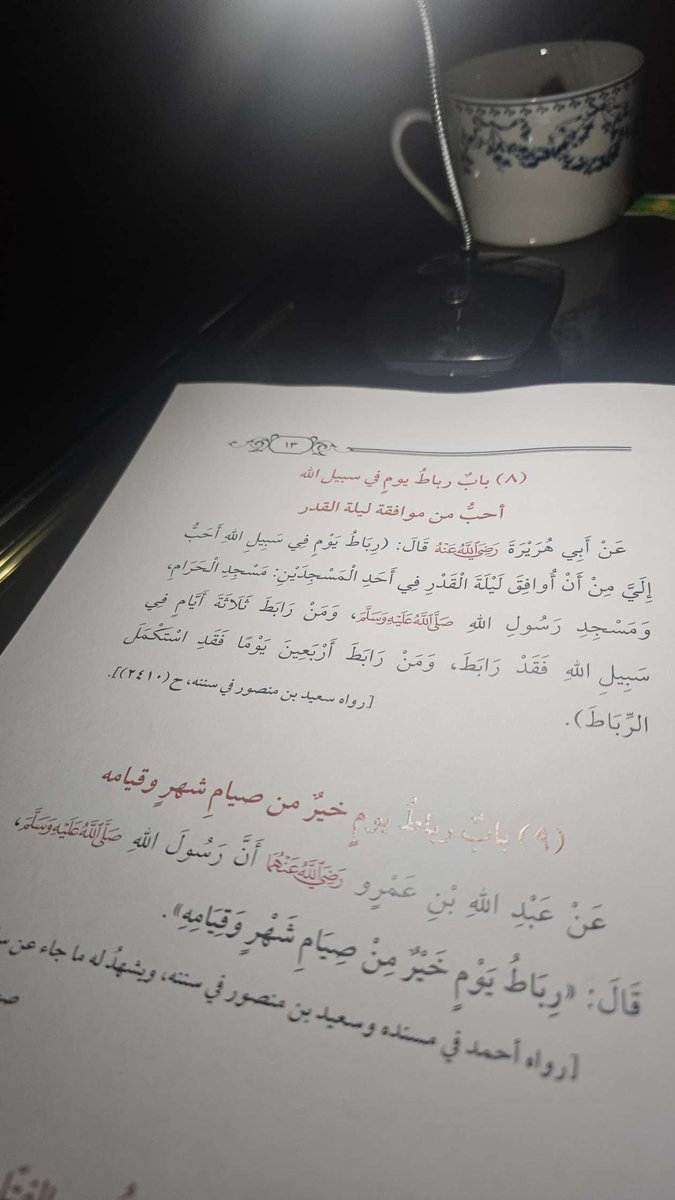 ١٣
(٨) بابٌ رباطُ يومٍ في سبيل الله
أحبُّ من موافقة ليلة القدر
عَنْ أَبِي هُرَيْرَةَ رَضِيَ اللَّهُ عَنْهُ قَالَ: (رِبَاطُ يَوْمٍ فِي سَبِيلِ اللهِ أَحَبُّ
إِلَيَّ مِنْ أَنْ أُوافِقَ لَيْلَةَ الْقَدْرِ فِي أَحَدِ الْمَسْجِدَيْنِ: مَسْجِدِ الْحَرَامِ،
وَمَسْجِدِ رَسُولِ اللهِ صَلَّى اللَّهُ عَلَيْهِ وَسَلَّمَ، وَمَنْ رَابَطَ ثَلَاثَةَ أَيَّامٍ فِي
سَبِيلِ اللهِ فَقَدْ رَابَطَ، وَمَنْ رَابَطَ أَرْبَعِينَ يَوْمًا فَقَدِ اسْتَكْمَلَ
الرِّبَاطَ).
[رواه سعيد بن منصور في سننه، ح (٢٤١٠)].
(٩) بابٌ رباطُ يومٍ خيرٌ من صيامِ شهرٍ وقيامه
عَنْ عَبْدِ اللهِ بْنِ عَمْرٍو رَضِيَ اللَّهُ عَنْهُمَا أَنَّ رَسُولَ اللهِ صَلَّى اللَّهُ عَلَيْهِ وَسَلَّمَ،
قَالَ: «رِبَاطُ يَوْمٍ خَيْرٌ مِنْ صِيَامِ شَهْرٍ وَقِيَامِهِ».
[رواه أحمد في مسنده وسعيد بن منصور في سننه، ويشهدُ له ما جاء عن